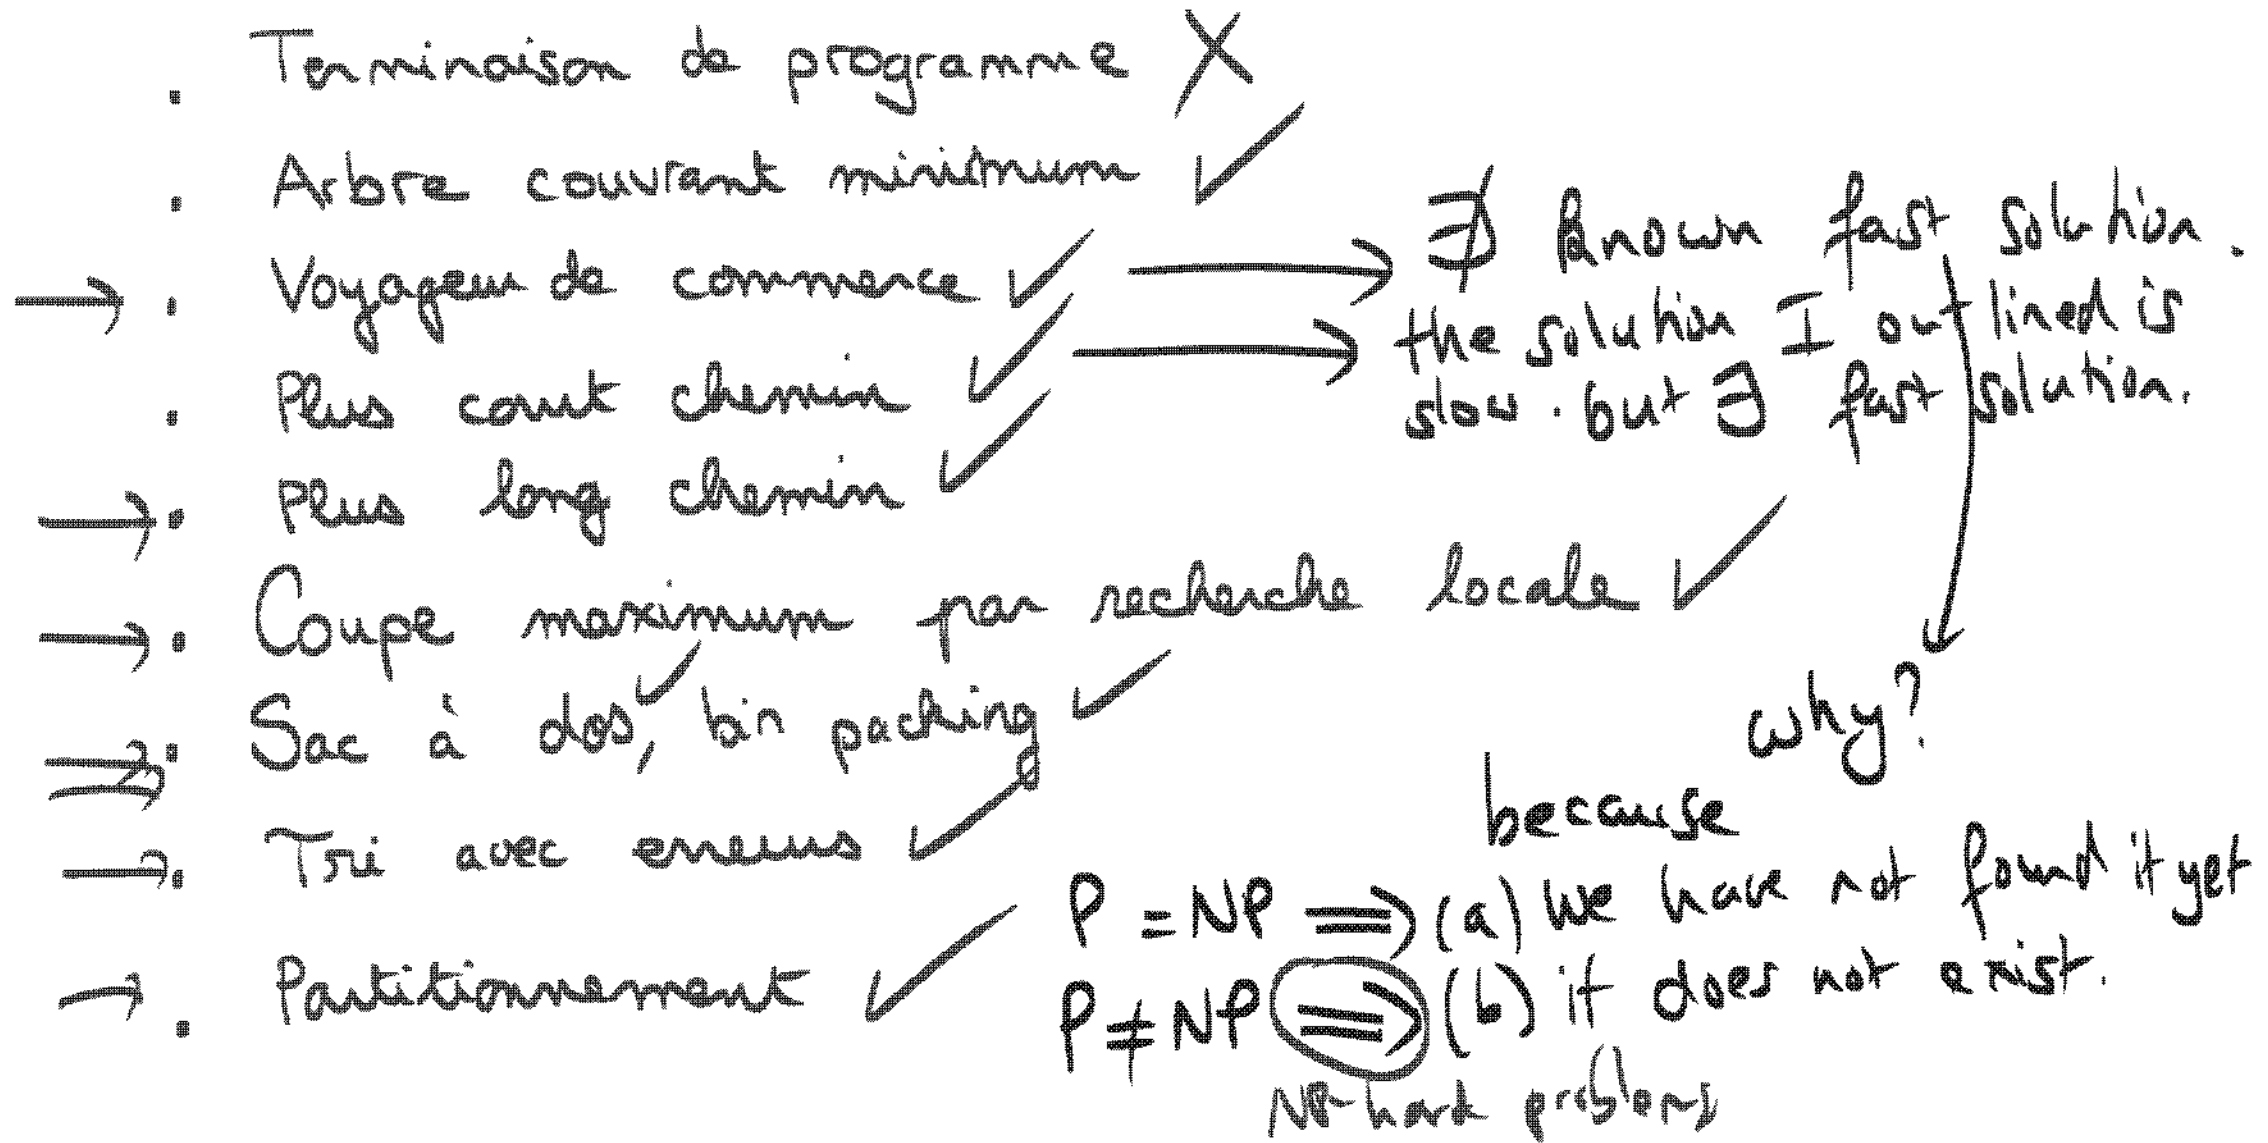 . Terminaison de programme X
. Arbre couvrant minimum ✓
→ . Voyageur de commerce ✓ → ∄ known fast solution.
. Plus court chemin ✓ → the solution I outlined is
slow. but ∃ fast solution.
→ . Plus long chemin ✓
→ . Coupe maximum par recherche locale ✓
⇒ . Sac à dos, ✓ bin packing ✓
→ . Tri avec erreurs ✓
→ . Partitionnement ✓
why?
because
P = NP ⇒ (a) we have not found it yet
P ≠ NP ⇒ (b) it does not exist.
NP-hard problems